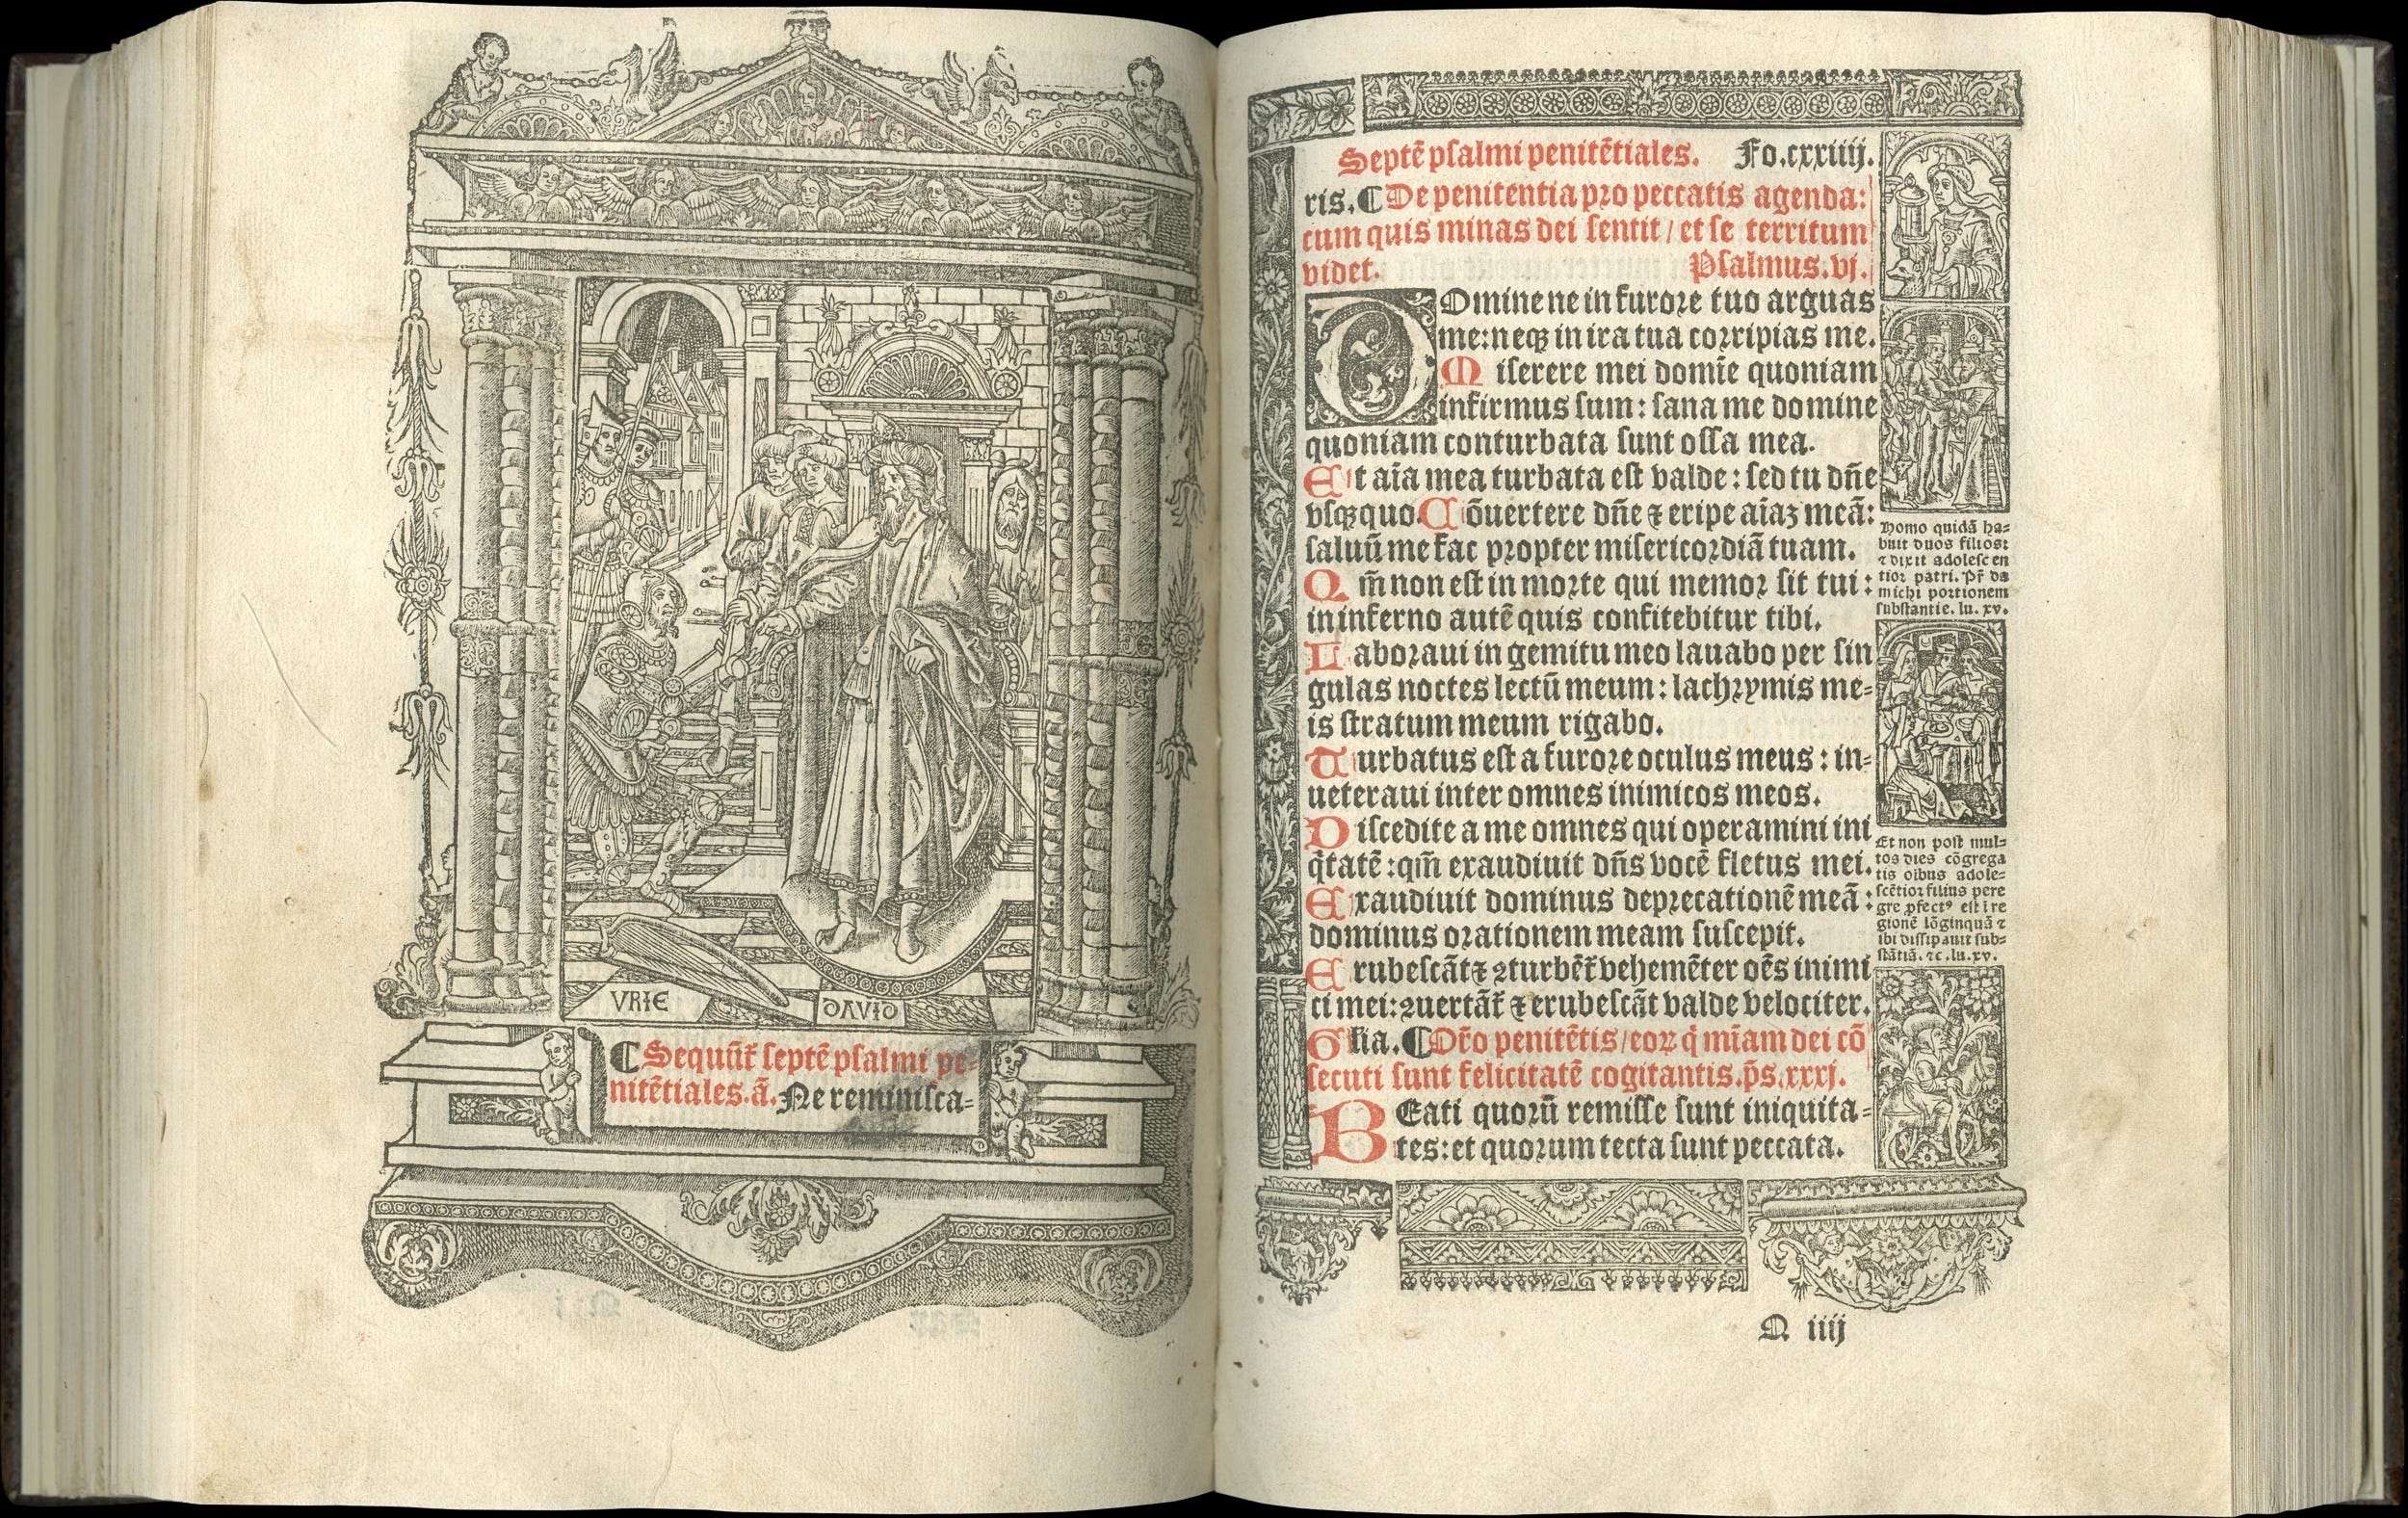 VRIE
DAVID
¶ Sequūt̄ septē psalmi pe=
nitētiales. ā. Ne reminisca=
Septē psalmi penitētiales. Fo. cxxiiij.
ris. ¶ De penitentia pro peccatis agenda:
cum quis minas dei sentit / et se territum
videt. Psalmus. vj.
DOmine ne in furore tuo arguas
me: neqꝫ in ira tua corripias me.
Miserere mei domīe quoniam
infirmus sum: sana me domine
quoniam conturbata sunt ossa mea.
Et aīa mea turbata est valde: sed tu dn̄e
vsqꝫquo. Cōuertere dn̄e ⁊ eripe aīaꝫ meā:
saluū me fac propter misericordiā tuam.
Qm̄ non est in morte qui memor sit tui:
in inferno autē quis confitebitur tibi.
Laboraui in gemitu meo lauabo per sin
gulas noctes lectū meum: lachrymis me=
is stratum meum rigabo.
Turbatus est a furore oculus meus: in=
ueteraui inter omnes inimicos meos.
Discedite a me omnes qui operamini ini
q̄tatē: qm̄ exaudiuit dn̄s vocē fletus mei.
Exaudiuit dominus deprecationē meā:
dominus orationem meam suscepit.
Erubescāt ⁊ ꝯturbēt̄ vehemēter oēs inimi
ci mei: ꝯuertāt̄ ⁊ erubescāt valde velociter.
Glia. ¶ Or̄o penitētis / eoꝝ q̄ mīam dei cō
secuti sunt felicitatē cogitantis. p̄s. xxxj.
BEati quorū remisse sunt iniquita=
tes: et quorum tecta sunt peccata.
Homo quidā ha=
buit duos filios:
⁊ dixit adolescen
tior patri. Pr̄ da
michi portionem
substantie. lu. xv.
Et non post mul=
tos dies cōgrega
tis oībus adole=
scētior filius pere
gre ꝓfectꝰ est ī re
gionē lōginquā ⁊
ibi dissipauit sub=
stātiā. ⁊c. lu. xv.
Q iiij